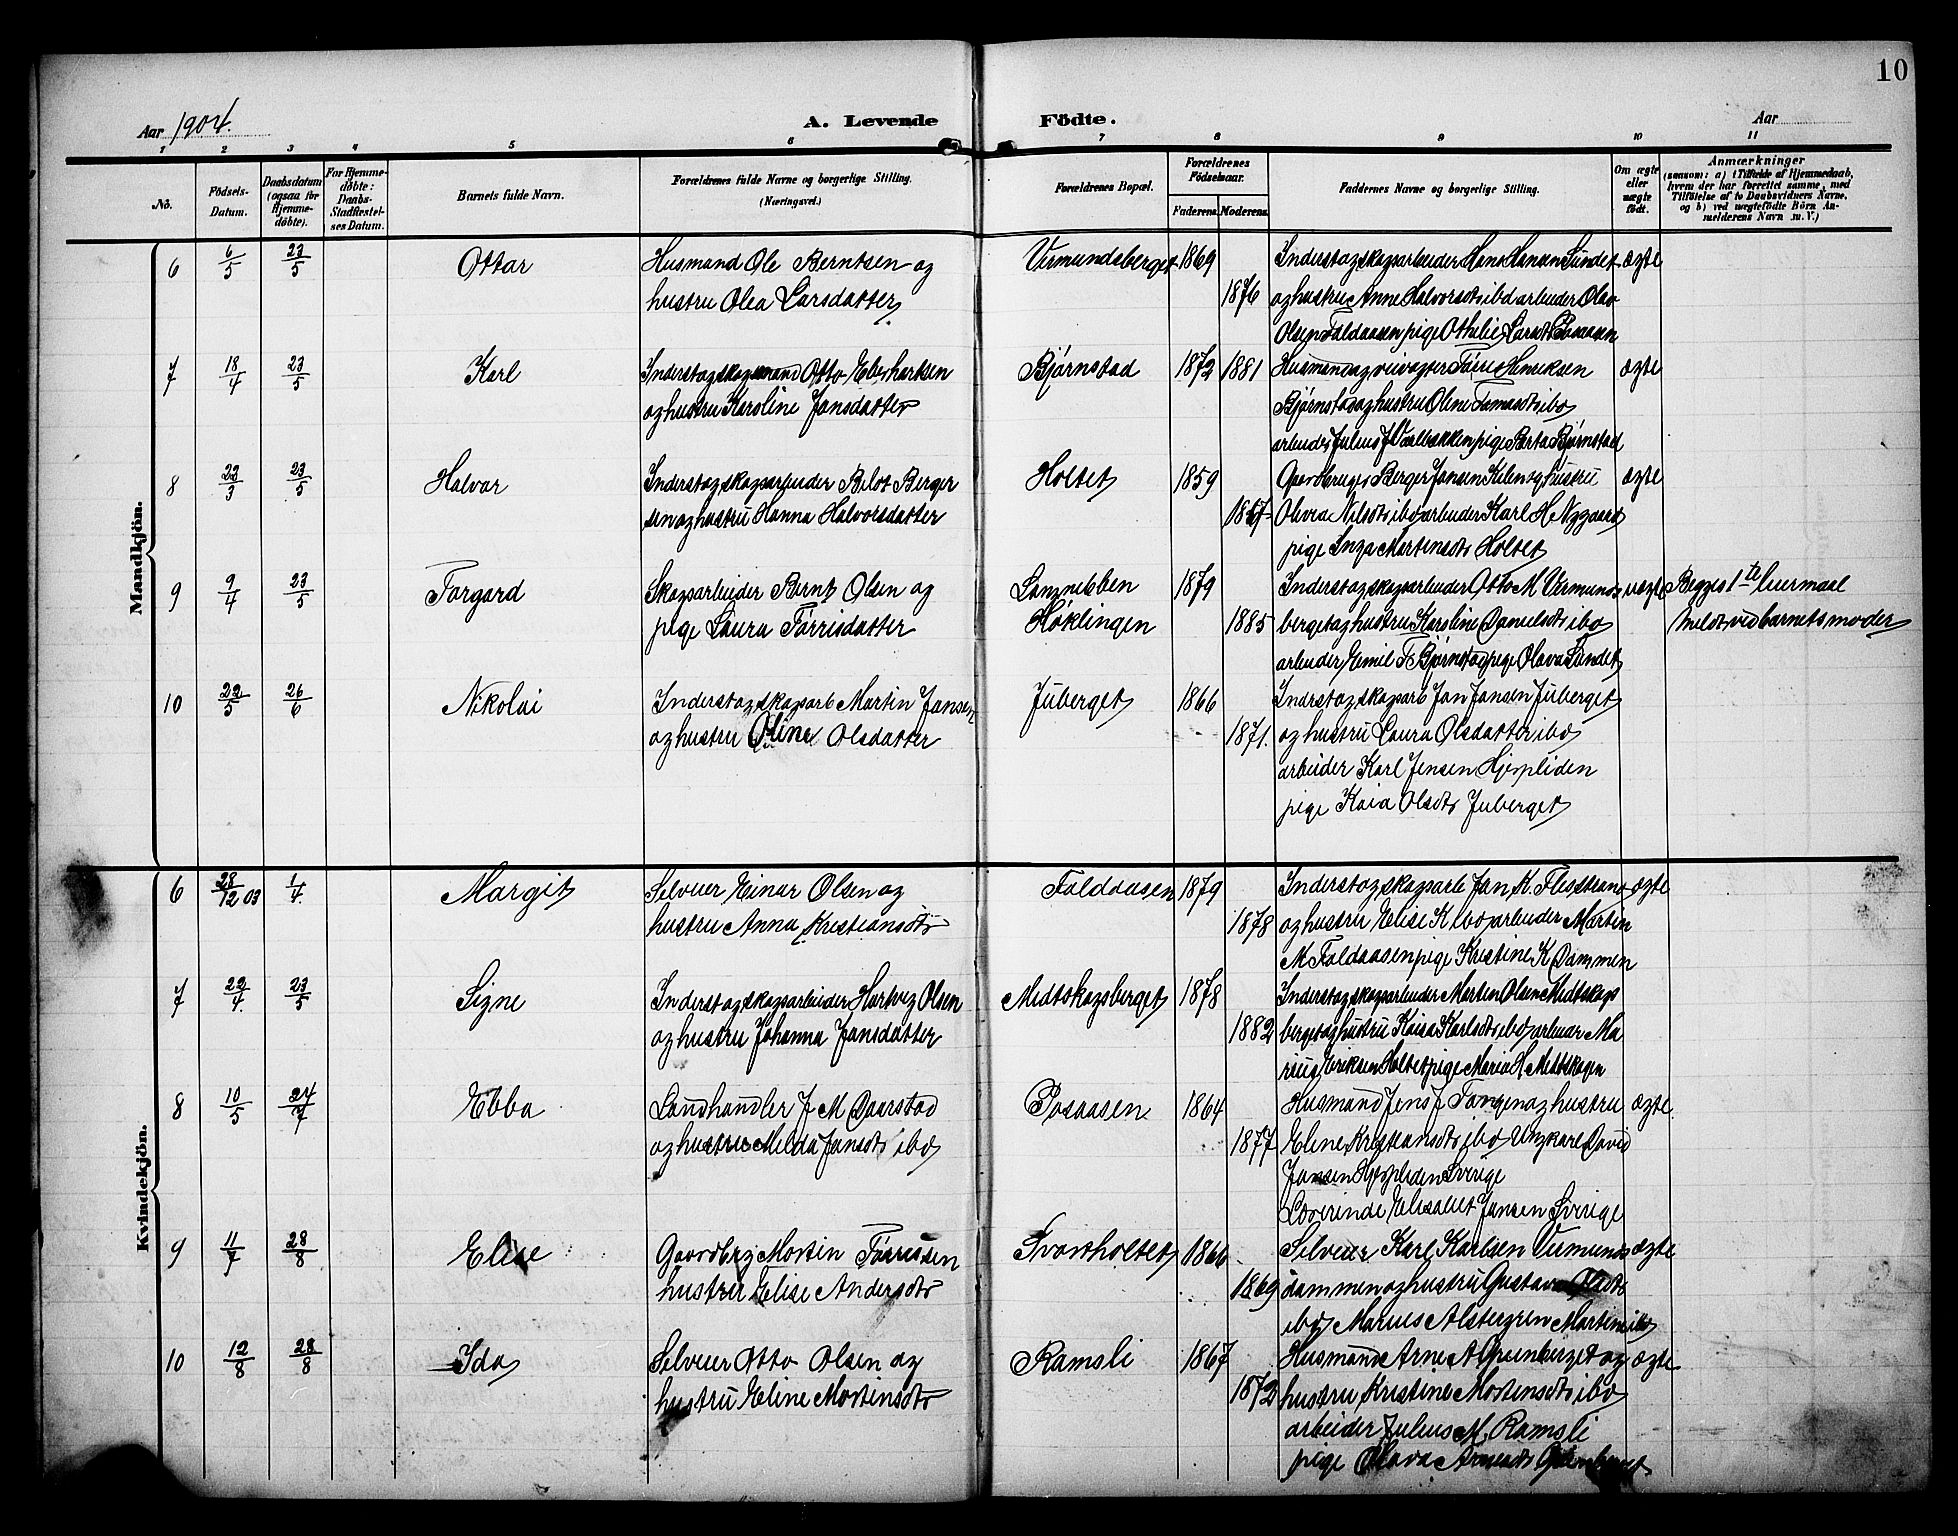 10
Aar 1904.
A. Levende
Födte.
Aar
1 2 3 4 5 6 7 8 9 10 11
No.
Födsels-
Datum.
Daabsdatum
(ogsaa for
Hjemme-
døbte).
For Hjemme-
døbte:
Daabs-
Stadfæstel-
ses Datum.
Barnets fulde Navn.
Forældrenes fulde Navne og borgerlige Stilling.
(Næringsvei.)
Forældrenes Bopæl.
Forældrenes
Födselsaar.
Faderens. Moderens.
Faddernes Navne og borgerlige Stilling.
Om ægte
eller
uægte
født.
Anmærkninger
(saasom: a) i Tilfælde af Hjemmedaab,
hvem der har forrettet samme, med
Tilföielse af to Daabsvidners Navne,
og b) ved uægtefödte Börn An-
melderens Navn m. V.)
Mandkjön.
6 6/5 23/5 Ottar
Husmand Ole Berntsen og
hustru Olea Larsdatter
Vermundsberget 1869
1876
Inderst og skogsarbeider Hans Hansen Sundet
og hustru Anne Halvorsdtr ibd arbeider Olav
Olsen Faldaasen pige Othelie Larsdt Posaasen
ægte
7 18/4 23/5 Karl
Inderst og skogsmand Otto Eberhartsen
og hustru Karoline Jansdatter
Bjørnstad 1872 1881
Husmand og veivogter Tørris Henriksen
Bjørnstad og hustru Oline Tomasdtr ibd
arbeider Julius J Værbakken pige Berta Bjørnstad
ægte
8 22/3 23/5 Halvar
Inderst og skogsarbeider Berger
sen og hustru Hanna Halvorsdatter
Holtet 1859
1867
Gaardbruger Berger Jansen Kilen og hustru
Olivia Nilsdtr ibd arbeider Karl H Nygaard
pige Inga Martinsdtr Holtet
ægte
9 9/4 23/5 Torgard
Skogsarbeider Bernt Olsen og
pige Laura Tørrisdatter
Høklingen
1879
1885
Inderst og skogsarbeider Otto M Vermunds
berget og hustru Karoline Danielsdtr ibd
arbeider Emil T Bjørnstad og pige Olava Sundet
uægte
Begges 1te leiermaal
Meldt ved barnets moder
10 22/5 26/6 Nikolai
Inderst og skogsarb Martin Jansen
og hustru Oline Olsdatter
Juberget 1866
1871.
Inderst og skogsarb Jan Jansen Juberget
og hustru Laura Olsdatter ibd
arbeider Karl Jensen Hjerpliden
pige Kaia Olsdtr Juberget
Kvindekjön.
6 28/12 03 1/4 Margit
Selveier Einar Olsen og
hustru Anna Kristiansdtr
Faldaasen 1879
1878
Inderst og skogsarb Jan K. Flisstrand
og hustru Elise K ibd arbeider Martin
M Faldaasen pige Kristine K Dammen
ægte
7 22/4 23/5 Signe
Inderst og skogsarbeider Hartvig Olsen
og hustru Johanna Jansdatter
Medtskogsberget 1878
1882
Inderst og skogsarbeider Martin Olsen Medtskogs
berget og hustru Kaisa Karlsdtr ibd arbeider Ma
rius Eriksen Holtet pige Maria H Medtskogen
8 10/5 24/7 Ebba
Landhandler J M Daarstad
og hustru Milda Jansdtr ibd
Posaasen 1864
1877
Husmand Jens J Tangen og hustru
Eline Kristiansdtr ibd Ungkarl David
Jansen Hjerpliden Sverige
Lærerinde Elisabet Jansen Sverige
ægte
9 11/7 28/8 Elise
Gaardbrg Martin Tørrissen
hustru Elise Andersdtr
Svartholtet 1866
1869
Selveier Karl Karlsen Vermunds
dammen og hustru Gustava Olsdtr
ibd Marius Alstergren Martine ibd
ægte
10 12/8 28/8 Ida
Selveier Otto Olsen og
hustru Eline Martinsdtr
Ramsli 1867
1872
Husmand Arne A Grønberget og
hustru Kristine Mortensdtr ibd
arbeider Julius M. Ramsli
pige Olava Arnesdtr Grønberget
ægte